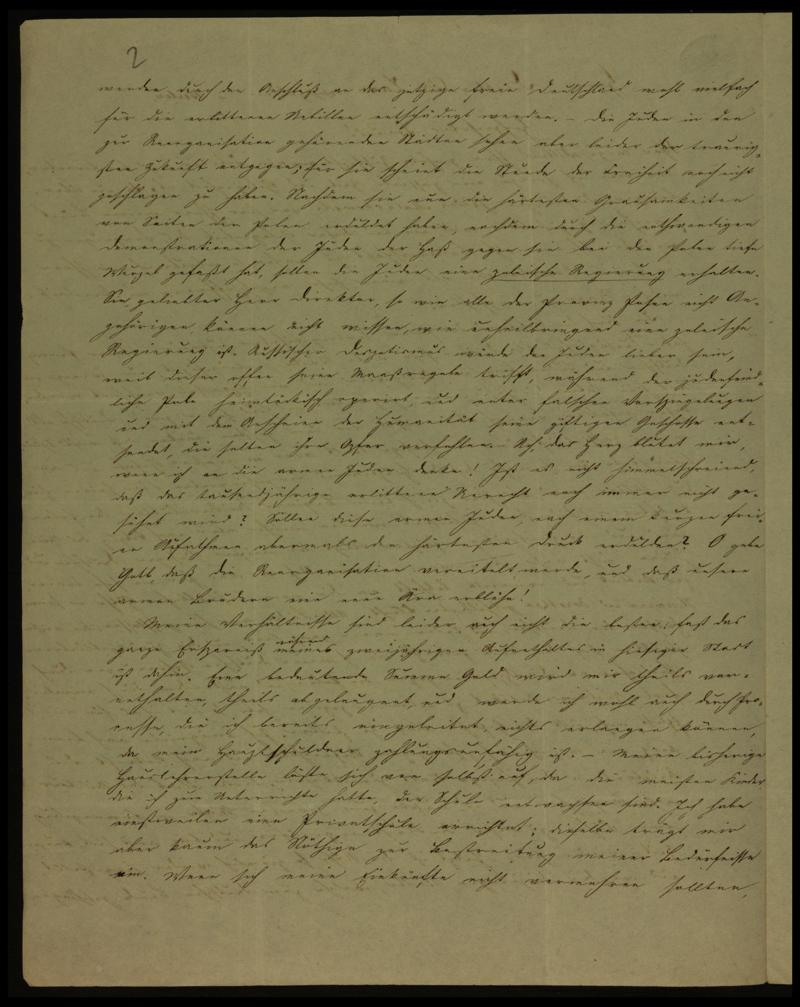 2
werden durch den Anschluß an das jetzige freie Deutschland wohl vielfach
für die erlittenen Unbillen entschädigt werden. – Die Juden in den
zur Reorganisation gehörenden Städten sehen aber leider der traurig-
sten Zukunft entgegen; für sie scheint die Stunde der Freiheit noch nicht
geschlagen zu haben. Nachdem sie nun die härtesten Grausamkeiten
von Seiten der Polen erduldet haben, nachdem durch die nothwendigen
Demonstrationen der Juden der Haß gegen sie bei den Polen tiefe
Wurzel gefaßt hat, sollen die Juden eine polnische Regierung erhalten.
Sie geliebter Herr Direktor, so wie alle der Provinz Posen nicht An-
gehörigen können nicht wissen, wie unheilbringend eine polnische
Regierung ist. Russischer Despotismus würde den Juden lieber sein,
weil dieser offen seine Maaßregeln trifft, während der judenfeind-
liche Pole heimtückisch operirt, und unter falschen Vorspiegelungen
und mit dem Anscheine der Humanität seine giftigen Geschosse ent-
sendet, die selten ihr Opfer verfehlen. – Ach, das Herz blutet mir,
wenn ich an die armen Juden denke! Ist es nicht himmelschreiend,
daß das tausendjährige erlittene Unrecht noch immer nicht ge-
sühnt wird? Sollen diese armen Juden, nach einem kurzen frei-
en Aufathmen abermals den härtesten Druck erdulden? O gebe
Gott daß die Reorganisation vereitelt werde, und daß unsern
armen Brüdern eine neue Ära erblühe!
Meine Verhältnisse sind leider auch nicht die besten; fast das
ganze Ersparniß während meines zweijährigen Aufenthaltes in hiesiger Stadt
ist dahin. Eine bedeutende Summe Geld wird mir theils vor-
enthalten, theils abgeleugnet, und werde ich wohl auch durch Pro-
cesse, die ich bereits eingeleitet, nichts erlangen können,
da mein Hauptschuldner zahlungsunfähig ist. – Meine bisherige
Hauslehrerstelle löste sich von selbst auf, da die meisten Kinder
die ich zum Unterrichte hatte, der Schule entwachsen sind. Ich habe
einstweilen eine Privatschule errichtet; dieselbe trägt mir
aber kaum das Nöthige zur Bestreitung meiner Bedürfnisse
ein. Wenn sich meine Einkünfte nicht vermehren sollten,